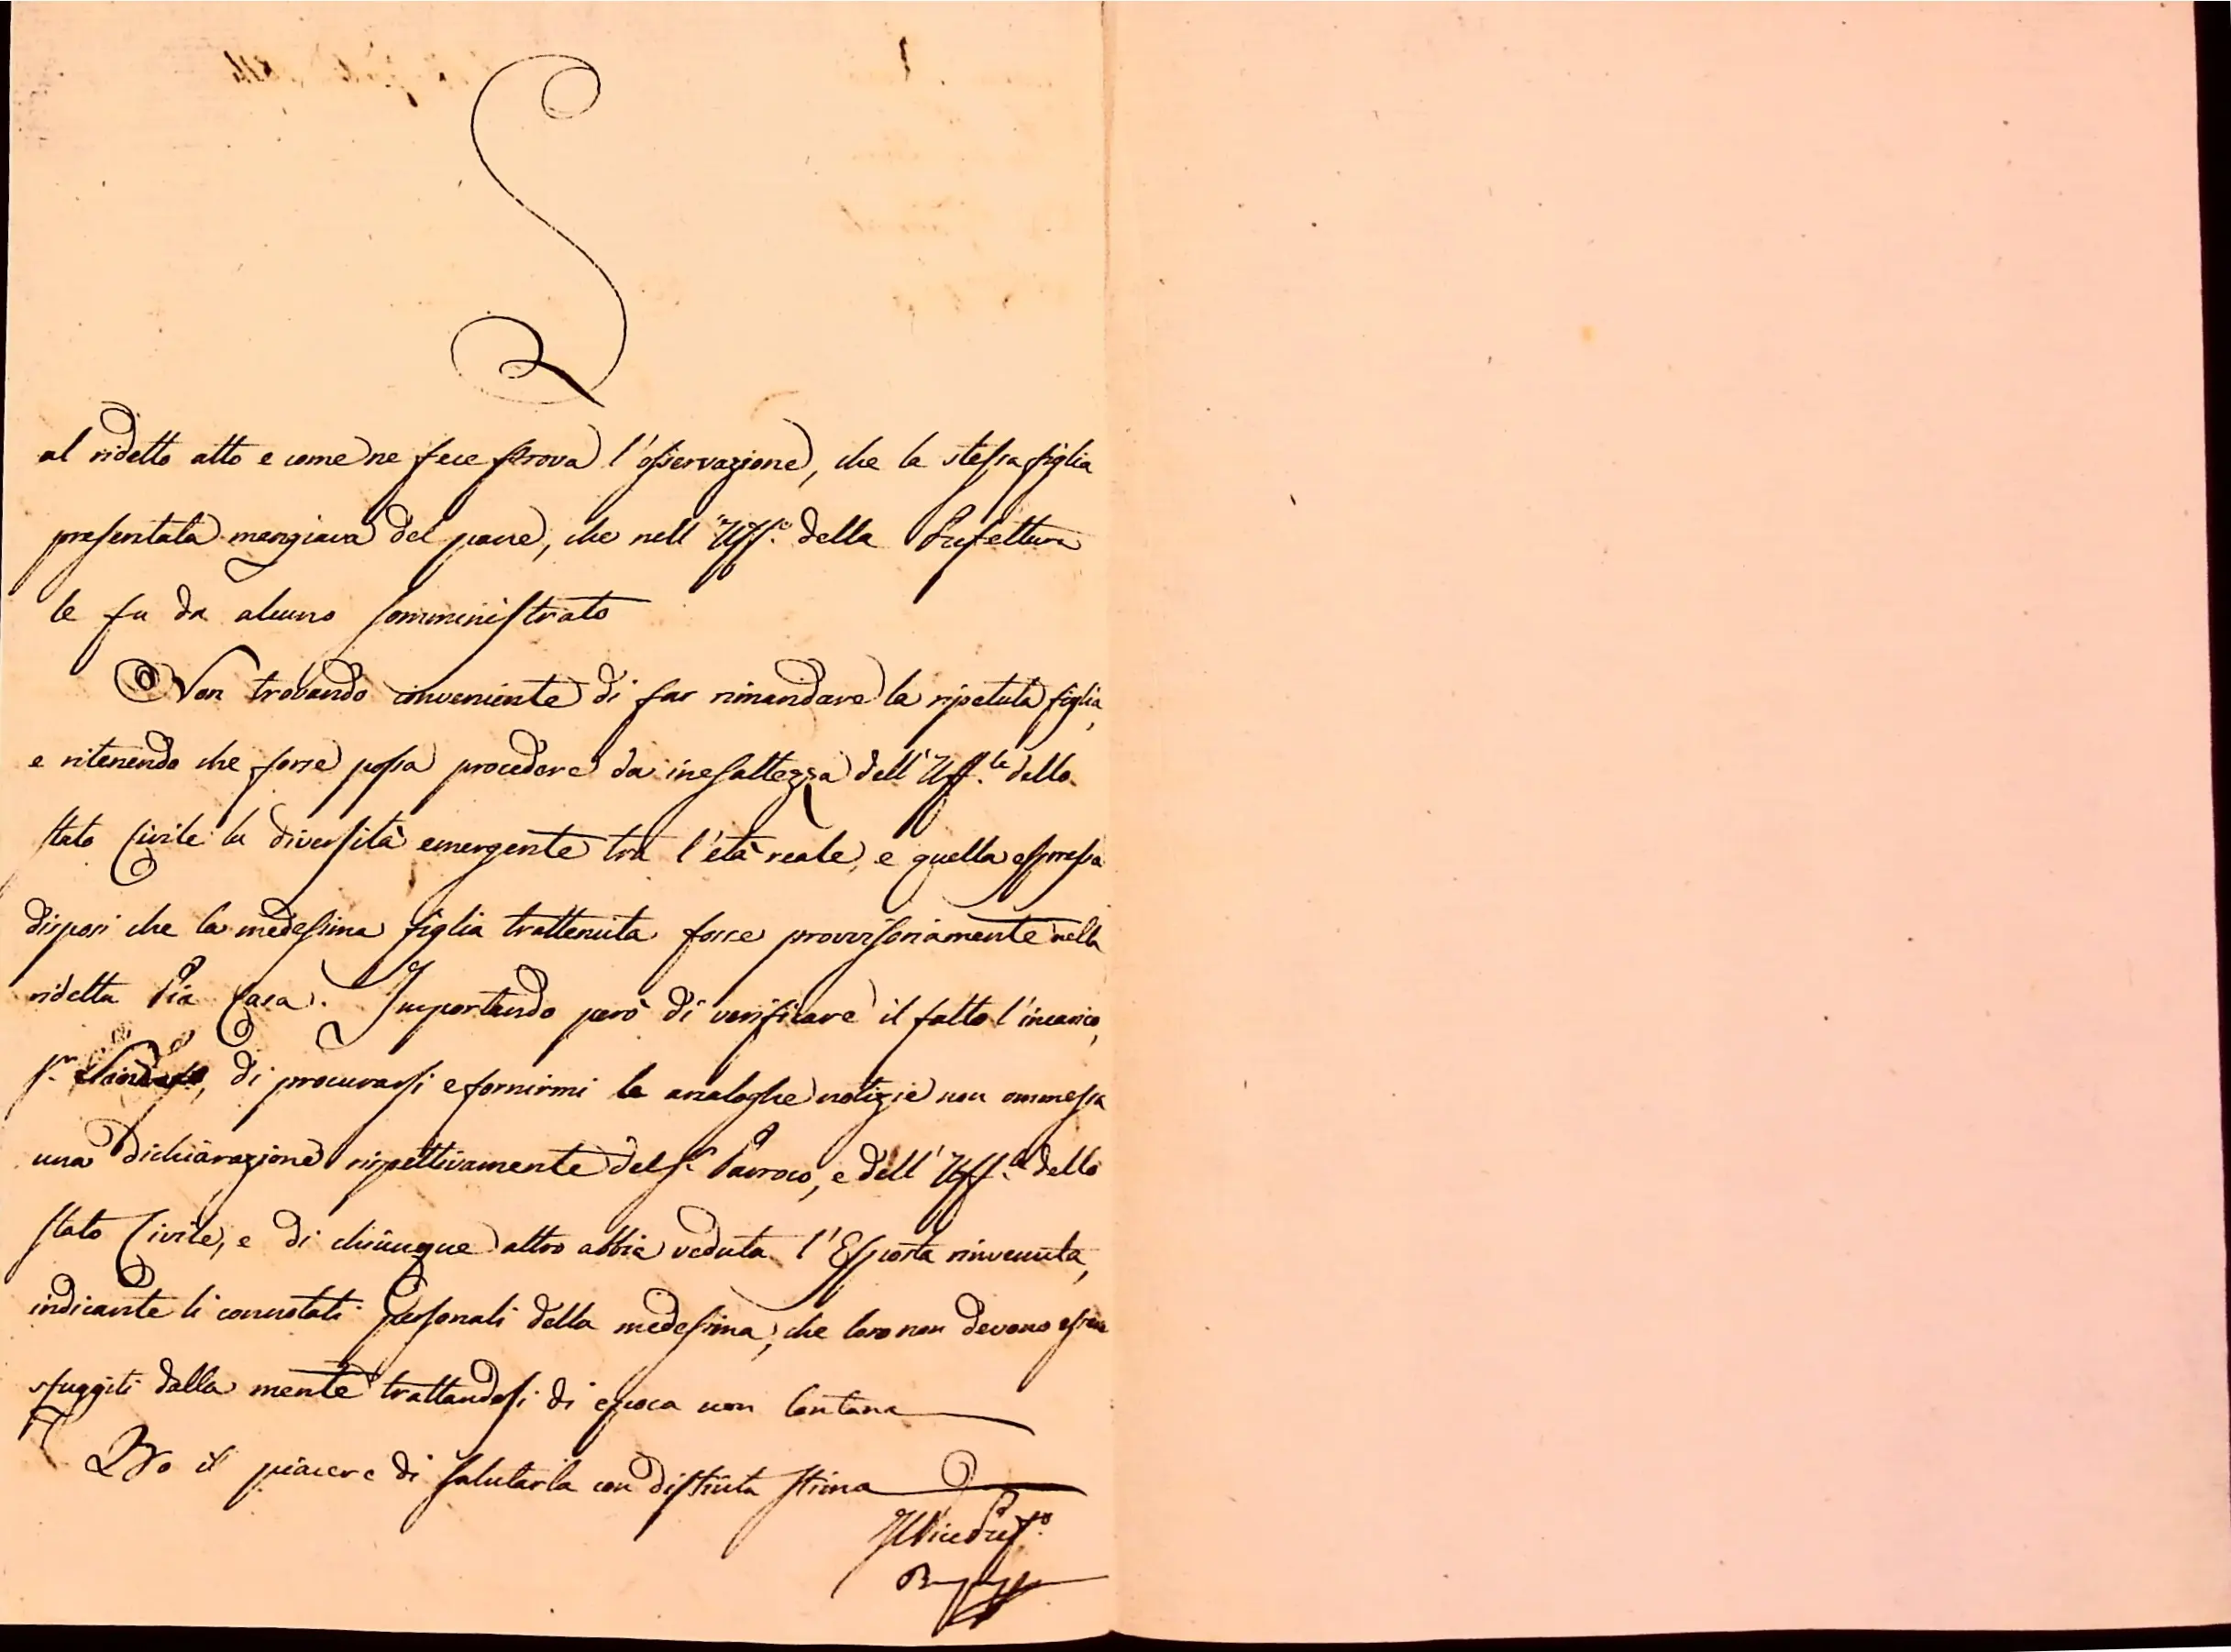 al ridetto atto e come ne fece prova l'osservazione, che la stessa figlia
presentata mangiava del pane, che nell'Uff.º della Prefettura
le fu da alcuno somministrato
Non trovando conveniente di far rimandare la ripetuta figlia,
e ritenendo che forse possa procedere da inesattezza dell'Uff.le dello
stato Civile la diversità emergente tra l'età reale, e quella espressa
disposi che la medesima figlia trattenuta fosse provvisoriamente nella
ridetta Pia Casa. Importando però di verificare il fatto l'incarico,
di procurarsi e fornirmi le analoghe notizie non ommessa
una dichiarazione rispettivamente del S.r Parroco, e dell'Uff.le dello
stato Civile, e di chiunque altro abbia veduta l'Esposta rinvenuta,
indicante li connotati personali della medesima, che loro non devono essere
sfuggiti dalla mente trattandosi di epoca non lontana
Ho il piacere di salutarla con distinta stima
Il Vice Pref.º